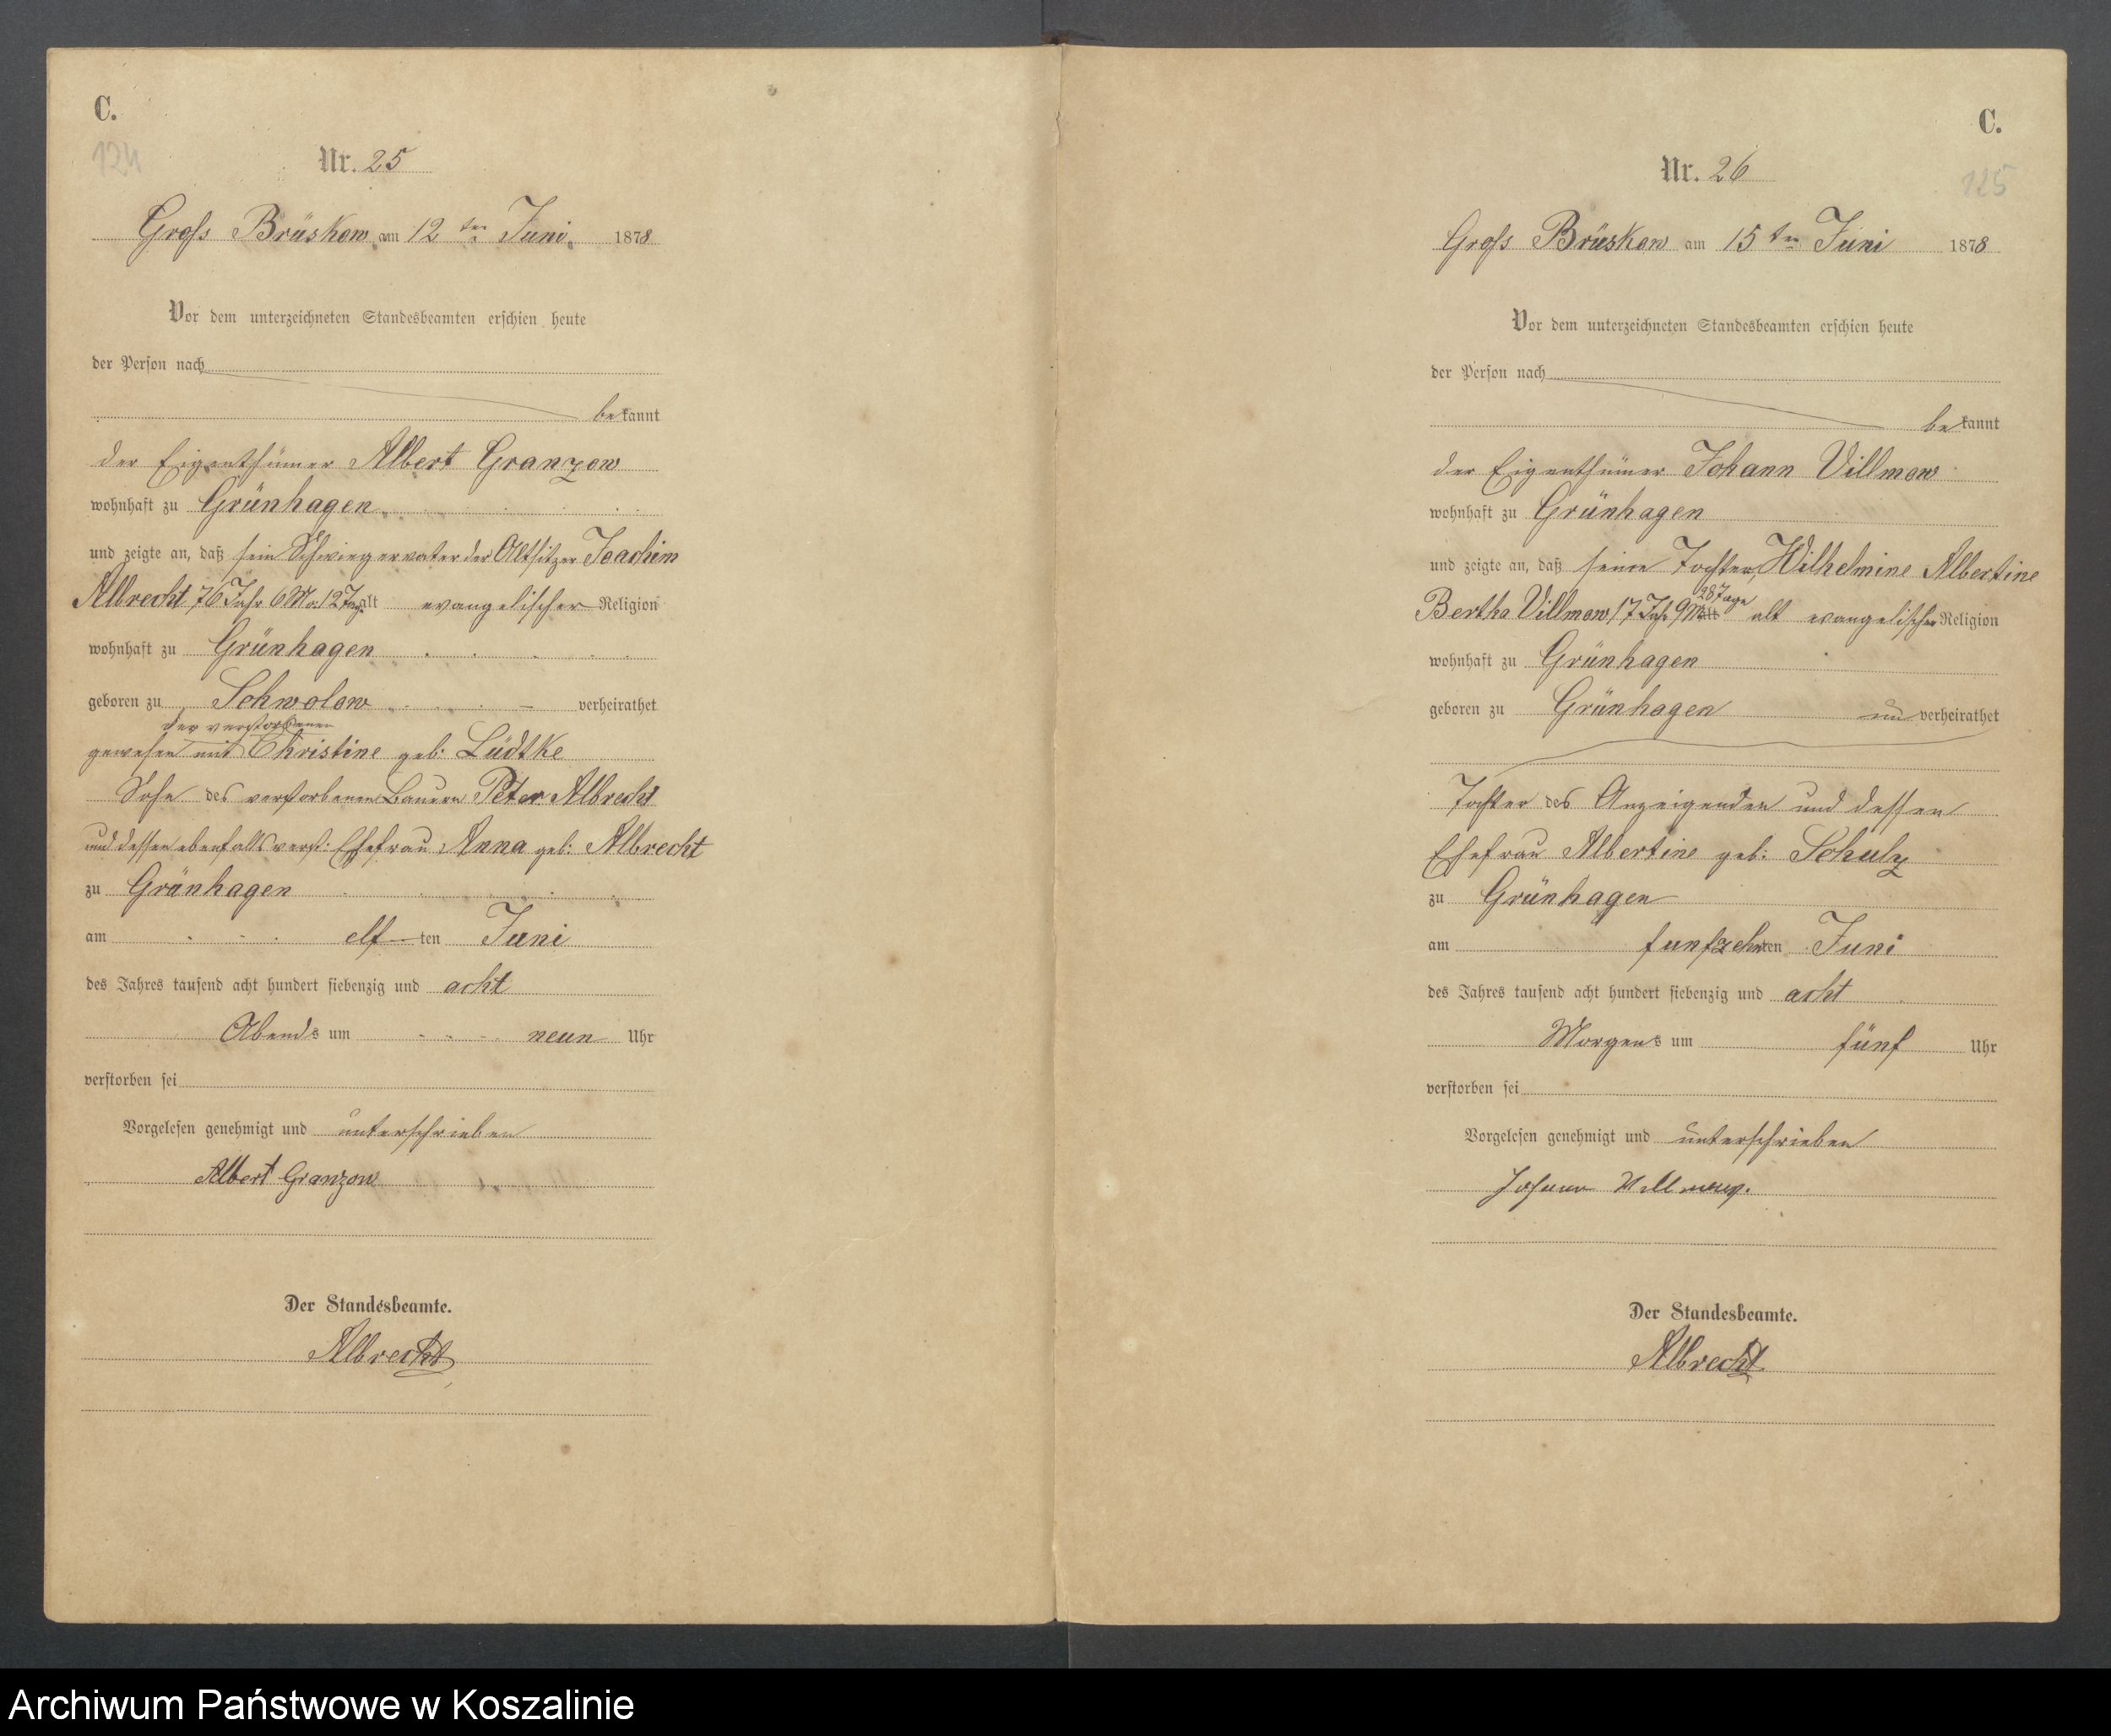 C.
124
Nr. 25
Gross Brüskow am 12 ten Juni 1878
Vor dem unterzeichneten Standesbeamten erschien heute
der Person nach
bekannt
der Eigenthümer Albert Granzow
wohnhaft zu Grünhagen
und zeigte an, daß sein Schwiegervater der Altsitzer Joachim
Albrecht 76 Jahr 6 Mo. 12 Tage alt evangelischer Religion
wohnhaft zu Grünhagen
geboren zu Schwolow verheirathet
der verstorbenen
gewesen mit Christine geb: Lüdtke
Sohn des verstorbenen Bauern Peter Albrecht
und dessen ebenfalls verst: Ehefrau Anna geb: Albrecht
zu Grünhagen
am elf ten Juni
des Jahres tausend acht hundert siebenzig und acht
Abends um neun Uhr
verstorben sei
Vorgelesen genehmigt und unterschrieben
Albert Granzow
Der Standesbeamte.
Albrecht
C.
125
Nr. 26
Gross Brüskow am 15 ten Juni 1878
Vor dem unterzeichneten Standesbeamten erschien heute
der Person nach
bekannt
der Eigenthümer Johann Villmow
wohnhaft zu Grünhagen
und zeigte an, daß seine Tochter, Wilhelmine Albertine
28 Tage
Bertha Villmow 17 Jahr 9 M alt evangelischer Religion
wohnhaft zu Grünhagen
geboren zu Grünhagen un verheirathet
Tochter des Anzeigenden und dessen
Ehefrau Albertine geb: Schulz
zu Grünhagen
am funfzehnten Juni
des Jahres tausend acht hundert siebenzig und acht
Morgens um fünf Uhr
verstorben sei
Vorgelesen genehmigt und unterschrieben
Johann Villmow.
Der Standesbeamte.
Albrecht
Archiwum Państwowe w Koszalinie